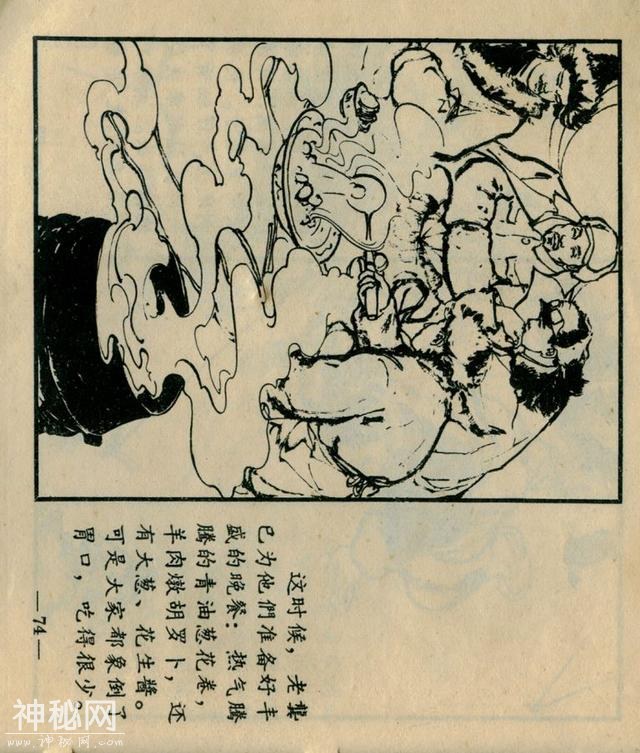 这时候，老龔
已为他們准备好丰
盛的晚餐：热气腾
腾的青油葱花卷，
羊肉燉胡罗卜，还
有大葱、花生醬。
可是大家都象倒了
胃口，吃得很少。
—74—
神秘网
www.神秘网.com